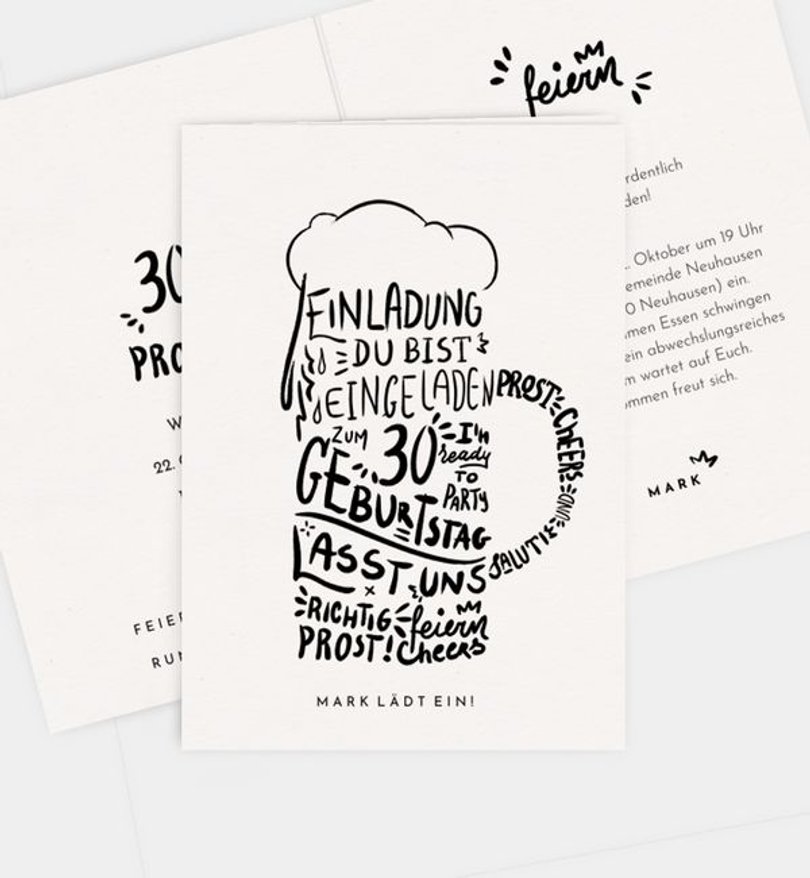 EINLADUNG
DU BIST
EINGELADEN
ZUM 30
GEBURTSTAG
I'm
ready
TO
PARTY
LASST UNS
RICHTIG feiern
PROST! Cheers
PROST CHEERS
SALUTI
MARK LÄDT EIN!
30
22.
FEIER
RUN
feiern
Oktober um 19 Uhr
Neuhausen
Neuhausen) ein.
Essen schwingen
ein abwechslungsreiches
wartet auf Euch.
freut sich.
MARK